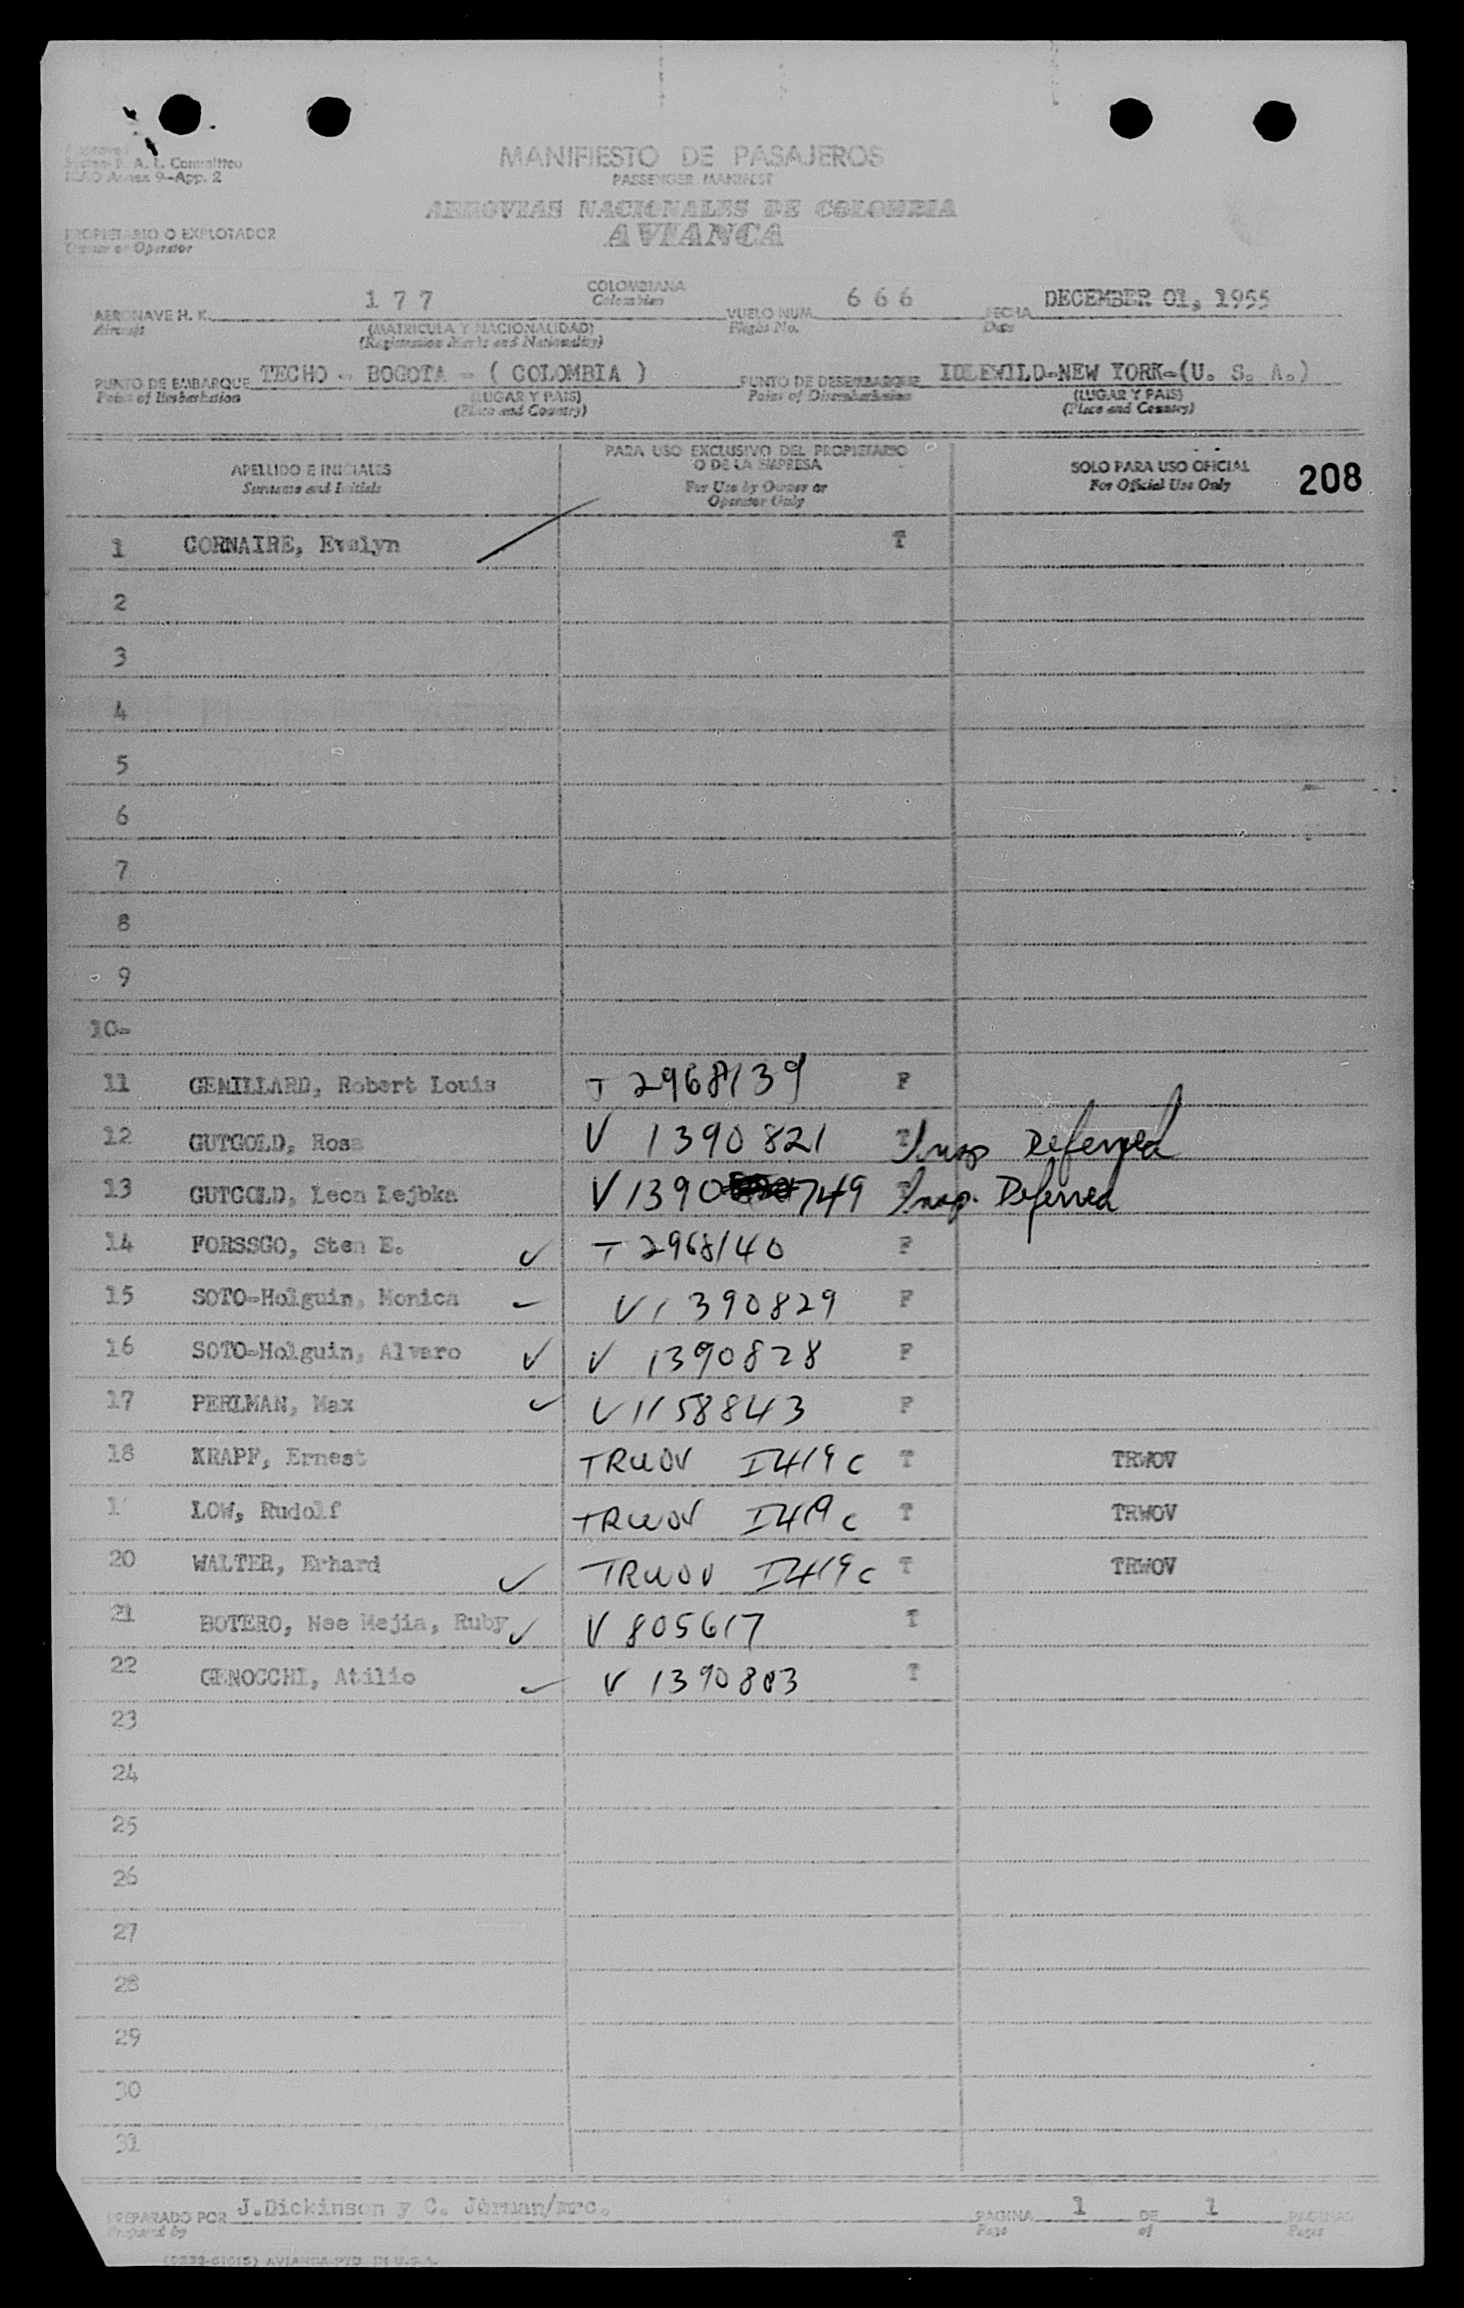 A. L. Committee
Annex 9-App. 2
MANIFIESTO DE PASAJEROS
PASSENGER MANIFEST
AEROVIAS NACIONALES DE COLOMBIA
AVIANCA
PROPIETARIO O EXPLOTADOR
Owner or Operator
AERONAVE H. K. 177 COLOMBIANA VUELO NUM. 666 FECHA DECEMBER 01, 1955
Aircraft Colombian Flight No. Date
(MATRICULA Y NACIONALIDAD)
(Registration Marks and Nationality)
PUNTO DE EMBARQUE TECHO - BOGOTA - ( COLOMBIA ) PUNTO DE DESEMBARQUE IDLEWILD-NEW YORK-(U. S. A.)
Point of Embarkation (LUGAR Y PAIS) Point of Disembarkation (LUGAR Y PAIS)
(Place and Country) (Place and Country)
APELLIDO E INICIALES
Surname and Initials
PARA USO EXCLUSIVO DEL PROPIETARIO
O DE LA EMPRESA
For Use by Owner or
Operator Only
SOLO PARA USO OFICIAL
For Official Use Only
208
1 CORNAIRE, Evelyn T
2
3
4
5
6
7
8
9
10-
11 GEMILLARD, Robert Louis T 2968139 F
12 GUTGOLD, Rosa V 1390821 T Insp Deferred
13 GUTGOLD, Leon Lejbka V 1390 749 Insp. Deferred
14 FORSSGO, Sten E. ✓ T 2968140 F
15 SOTO-Holguin, Monica V1390829 F
16 SOTO-Holguin, Alvaro ✓ V 1390828 F
17 PERLMAN, Max ✓ V1158843 F
18 KRAPF, Ernest TRWOV I419c T TRWOV
1 LOW, Rudolf TRWOV I419c T TRWOV
20 WALTER, Erhard ✓ TRWOV I419c T TRWOV
21 BOTERO, Nee Mejia, Ruby ✓ V 805617 T
22 GENOCCHI, Atilio ✓ V 1390803 T
23
24
25
26
27
28
29
30
31
PREPARADO POR J.Dickinson y C. PAGINA 1 DE 1 PAGINAS
Prepared by Page of Pages
AVIANCA-PTD. IN U.S.A.